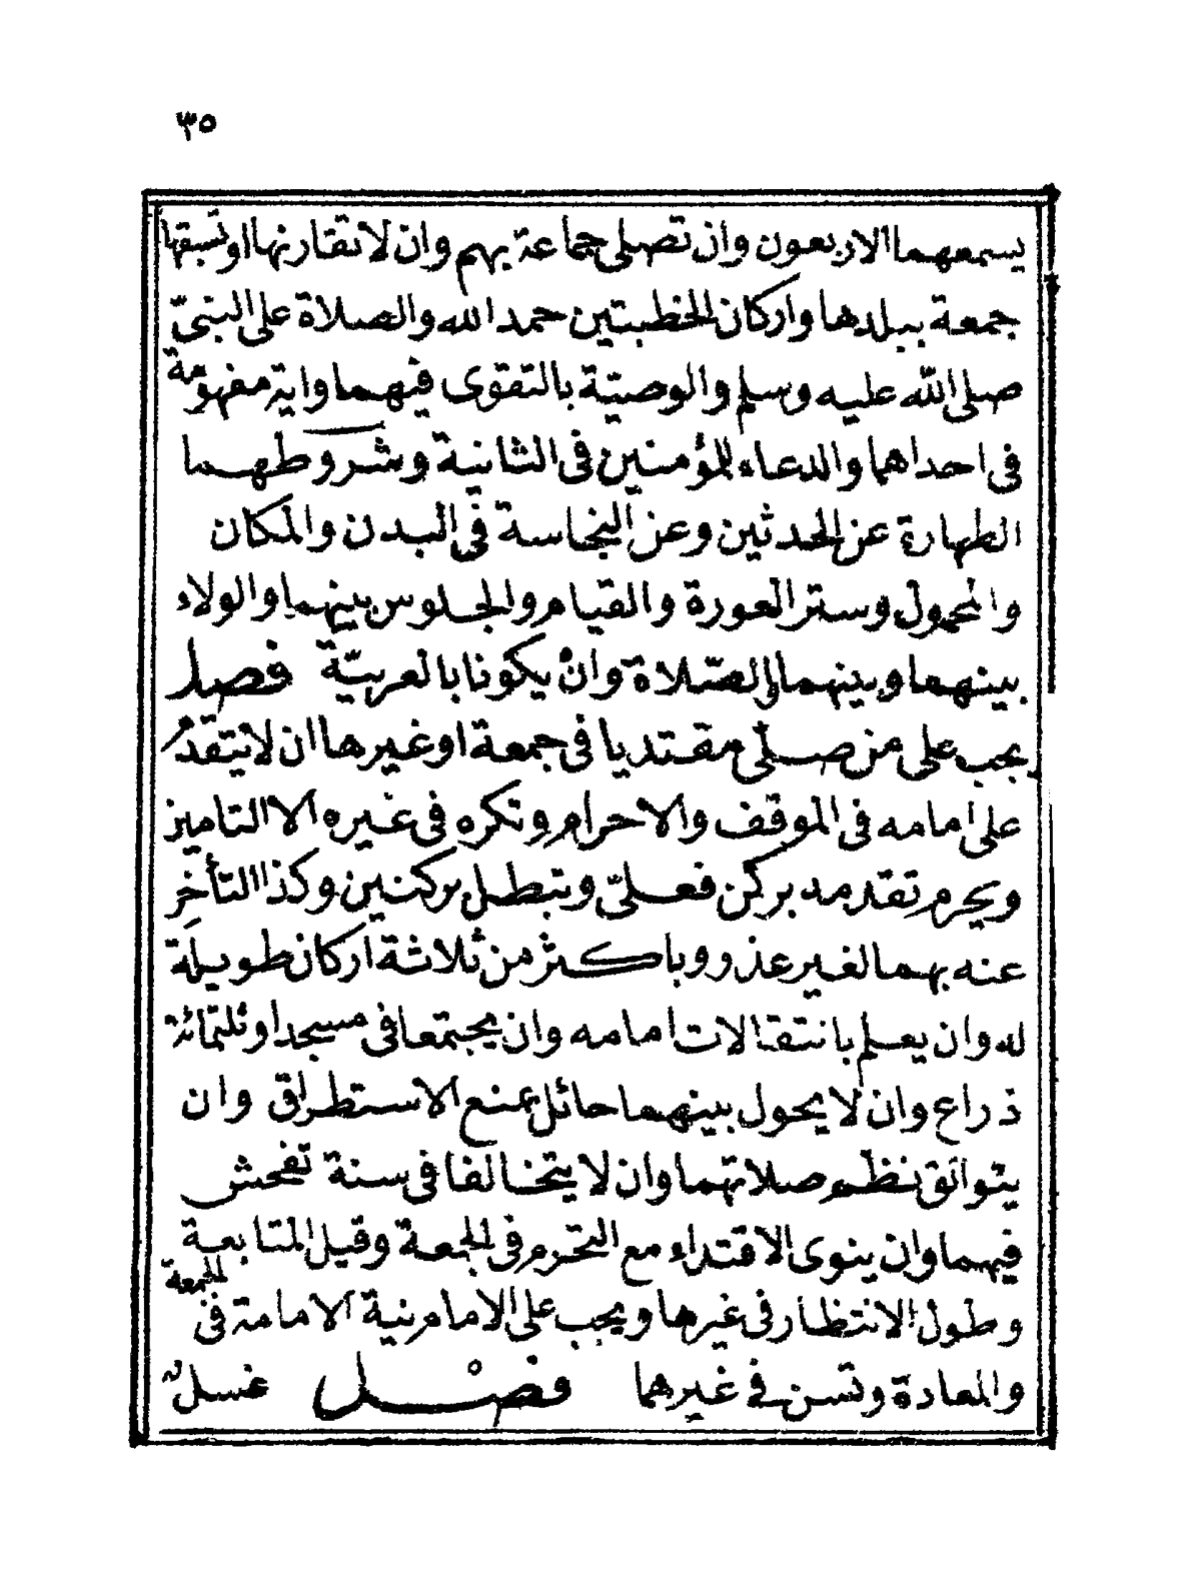 ٣٥
يسمعهما الاربعون وان تصلى جماعة بهم وان لا تقارنها او تسبقها
جمعة ببلدها واركان الخطبتين حمد الله والصلاة على النبىّ
صلى اللّه عليه وسلم والوصيّة بالتقوى فيهما واية مفهومة
فى احداهما والدعاء للمؤمنين فى الثانية وشروطهما
الطهارة عن الحدثين وعن النجاسة فى البدن والمكان
والمحمول وستر العورة والقيام والجلوس بينهما والولاء
بينهما وبينهما والصّلاة وانْ يكونا بالعربيّة فصل
يجب على من صلّى مقتديا فى جمعة او غيرها ان لا يتقدمُ
على امامه فى الموقف والاحرام وتكره فى غيره الا التامين
ويحرم تقدمه بركن فعلىّ وتبطل بركنين وكذا التأخر
عنه بهما لغير عذر وباكثر من ثلاثة اركان طويلة
له وان يعلم بانتقالات امامه وان يجتمعا فى مسجد او ثلثمائة
ذراع وان لا يحول بينهما حائل يمنع الاستطراق وان
يتوافق نظم صلاتهما وان لا يتخالفا فى سنة تفحش
فيهما وان ينوى الاقتداء مع التحرم فى الجمعة وقبل المتابعة
وطول الانتظار فى غيرها ويجب على الامام نية الامامة فى الجمعة
والمعادة وتسن فى غيرهما فصْل غسل